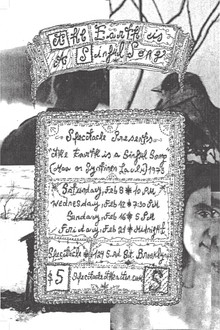 The Earth is
A Sinful Song
Spectacle Presents
The Earth is a Sinful Song
(Maa on Syntinen Laulu) 1973
Saturday, Feb 8 * 10 PM
Wednesday, Feb 12 * 7:30 PM
Sunday, Feb 16 * 5 PM
Friday, Feb 21 * Midnight
Spectacle * 124 S. 3rd St. Brooklyn
$5 Spectacletheater.com S